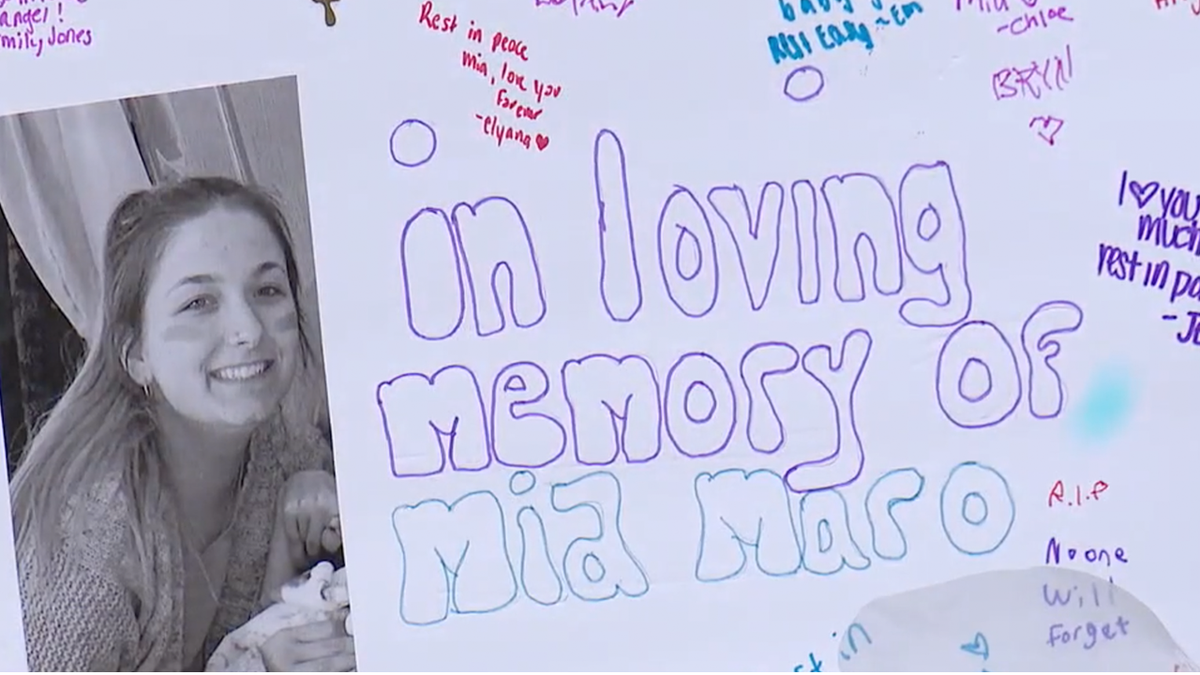 angel!
Emily Jones
Rest in peace
mia, love you
forever
-Elyana
Rest Easy ~Em
-Chloe
BRYN
in loving
memory of
Mia Maro
I you
much
rest in
R.I.P
No one
Will
Forget
in